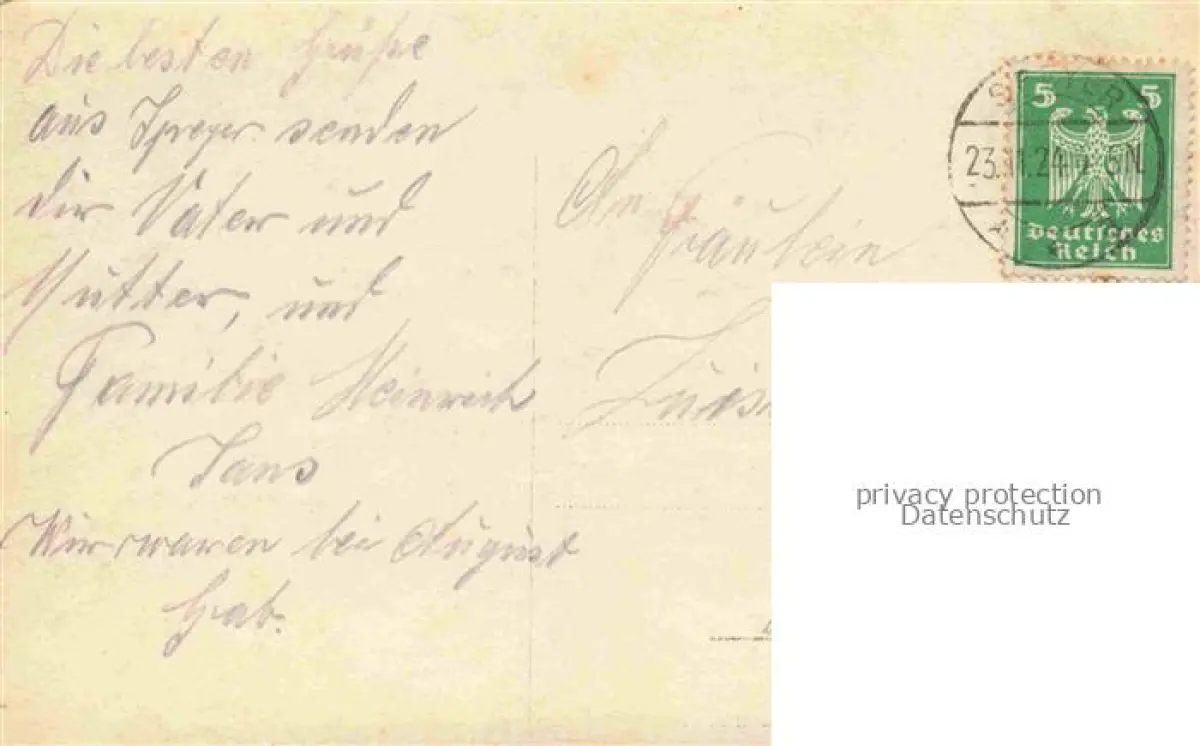 Die besten Grüße
aus Speyer senden
dir Vater und
Mutter, und
Familie Heinrich
Jans
Wir waren bei August
Grab.
An
Fräulein
Luise
SPEYER
23.11.24 6N.
5 5
Deutsches
Reich
privacy protection
Datenschutz